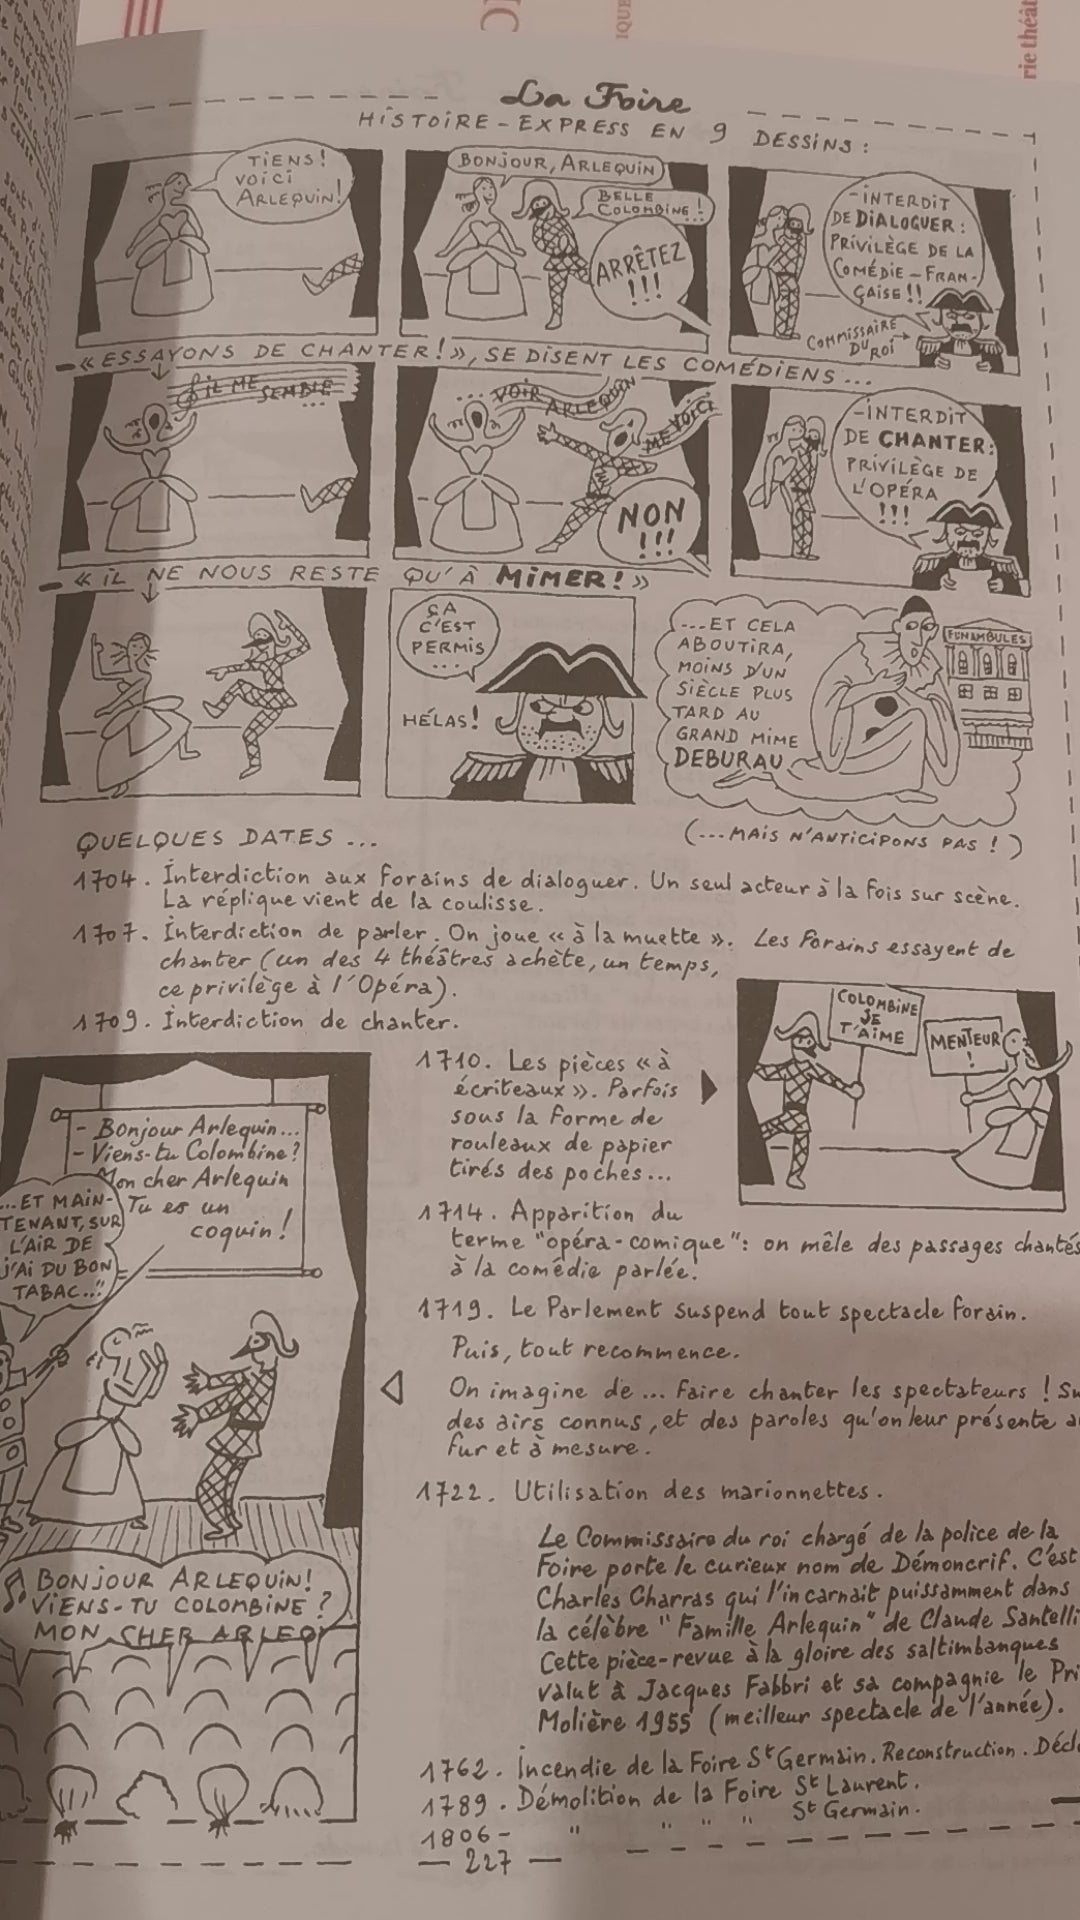 La Foire
HISTOIRE-EXPRESS EN 9 DESSINS :
TIENS!
VOICI
ARLEQUIN!
BONJOUR, ARLEQUIN
BELLE
COLOMBINE !
ARRÊTEZ
!!!
-INTERDIT
DE DIALOGUER:
PRIVILÈGE DE LA
COMÉDIE-FRAN-
ÇAISE!!
COMMISSAIRE
DU
ROI
« ESSAYONS DE CHANTER!», SE DISENT LES COMÉDIENS...
IL ME SEMBLE
...
... VOIR ARLEQUIN
ME VOICI
NON
!!!
-INTERDIT
DE CHANTER:
PRIVILÈGE DE
L'OPÉRA
!!!
« IL NE NOUS RESTE QU'À MIMER! »
ÇA
C'EST
PERMIS
...
HÉLAS!
...ET CELA
ABOUTIRA,
MOINS D'UN
SIÈCLE PLUS
TARD AU
GRAND MIME
DEBURAU
FUNAMBULES
(...MAIS N'ANTICIPONS PAS !)
QUELQUES DATES ...
1704. Interdiction aux forains de dialoguer. Un seul acteur à la fois sur scène.
La réplique vient de la coulisse.
1707. Interdiction de parler. On joue « à la muette ». Les forains essayent de
chanter (un des 4 théâtres achète, un temps,
ce privilège à l'Opéra).
1709. Interdiction de chanter.
COLOMBINE
JE
T'AIME
MENTEUR
!
1710. Les pièces « à
écriteaux ». Parfois
sous la forme de
rouleaux de papier
tirés des poches...
1714. Apparition du
terme "opéra-comique": on mêle des passages chantés
à la comédie parlée.
1719. Le Parlement suspend tout spectacle forain.
Puis, tout recommence.
On imagine de ... faire chanter les spectateurs ! Su
des airs connus, et des paroles qu'on leur présente a
fur et à mesure.
- Bonjour Arlequin...
- Viens-tu Colombine?
Mon cher Arlequin
Tu es un
coquin!
...ET MAIN-
TENANT, SUR
L'AIR DE
J'AI DU BON
TABAC..!!
BONJOUR ARLEQUIN!
VIENS-TU COLOMBINE ?
MON CHER ARLEQ
1722. Utilisation des marionnettes.
Le Commissaire du roi chargé de la police de la
Foire porte le curieux nom de Démoncrif. C'est
Charles Charras qui l'incarnait puissamment dans
la célèbre "Famille Arlequin" de Claude Santelli
Cette pièce-revue à la gloire des saltimbanques
valut à Jacques Fabbri et sa compagnie le Pri
Molière 1955 (meilleur spectacle de l'année).
1762. Incendie de la Foire St Germain. Reconstruction. Décl
1789. Démolition de la Foire St Laurent.
1806- " " " " St Germain.
— 227 —
rie théât
IQUE